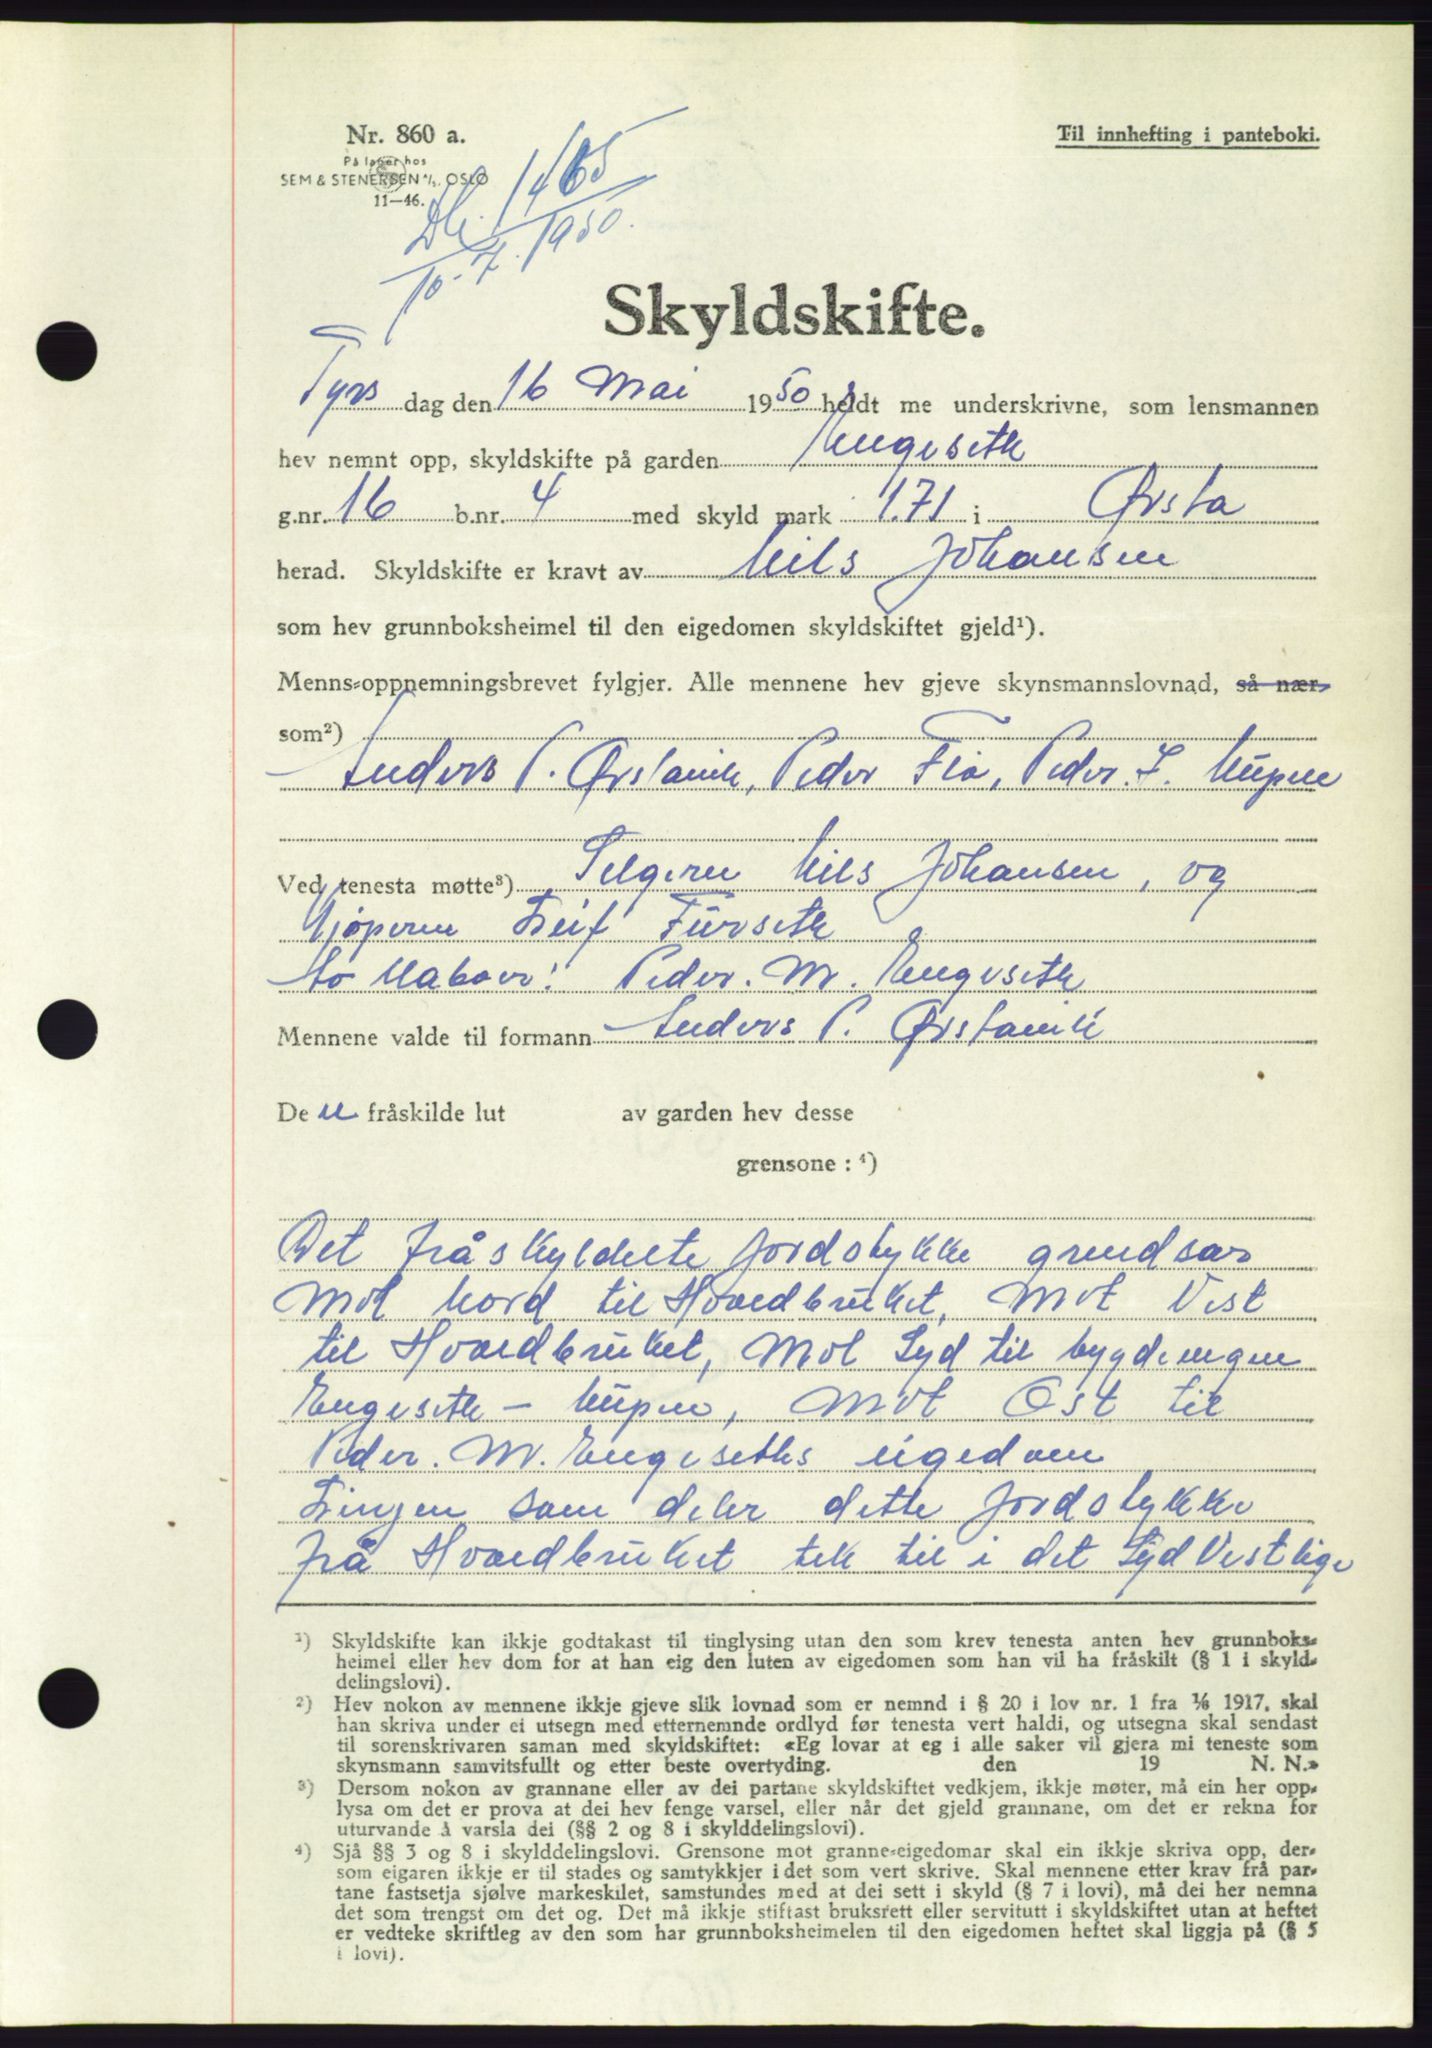 Nr. 860 a.
Til innhefting i panteboki.
På lager hos
SEM & STENERSEN A/S, OSLO
11—46.
Db. 1465
10-7. 1950.
Skyldskifte.
Tyrs dag den 16 Mai 1950 heldt me underskrivne, som lensmannen
hev nemnt opp, skyldskifte på garden Engeseth
g.nr. 16 b.nr. 4 med skyld mark 1.71 i Ørsta
herad. Skyldskifte er kravt av Nils Johansen
som hev grunnboksheimel til den eigedomen skyldskiftet gjeld¹).
Menns-oppnemningsbrevet fylgjer. Alle mennene hev gjeve skynsmannslovnad, så nær
som²)
Anders P. Ørstavik, Peder Flø, Peder. I. Nupen
Ved tenesta møtte³) Selgeren Nils Johansen, og
Kjøperen Leif Furseth
to Naboer: Peder. M. Engeseth
Mennene valde til formann Anders P. Ørstavik
De n fråskilde lut av garden hev desse
grensone : ⁴)
Det fråskyldete jordstykke grendsar
mot Nord til Hovedbruket, Mot Vest
til Hovedbruket, Mot Syd til bygdevegen
Engeseth — Nupen, Mot Øst til
Peder. M. Engeseths eigedom
Linjen som deler dette jordstykke
frå Hovedbruket tek til i det SydVestlige
¹) Skyldskifte kan ikkje godtakast til tinglysing utan den som krev tenesta anten hev grunnboks-
heimel eller hev dom for at han eig den luten av eigedomen som han vil ha fråskilt (§ 1 i skyld-
delingslovi).
²) Hev nokon av mennene ikkje gjeve slik lovnad som er nemnd i § 20 i lov nr. 1 fra 1/6 1917, skal
han skriva under ei utsegn med etternemnde ordlyd før tenesta vert haldi, og utsegna skal sendast
til sorenskrivaren saman med skyldskiftet: «Eg lovar at eg i alle saker vil gjera mi teneste som
skynsmann samvitsfullt og etter beste overtyding. den 19 N. N.»
³) Dersom nokon av grannane eller av dei partane skyldskiftet vedkjem, ikkje møter, må ein her opp-
lysa om det er prova at dei hev fenge varsel, eller når det gjeld grannane, om det er rekna for
uturvande å varsla dei (§§ 2 og 8 i skylddelingslovi).
⁴) Sjå §§ 3 og 8 i skylddelingslovi. Grensone mot granne-eigedomar skal ein ikkje skriva opp, der-
som eigaren ikkje er til stades og samtykkjer i det som vert skrive. Skal mennene etter krav frå par-
tane fastsetja sjølve markeskilet, samstundes med at dei sett i skyld (§ 7 i lovi), må dei her nemna
det som trengst om det og. Det må ikkje stiftast bruksrett eller servitutt i skyldskiftet utan at heftet
er vedteke skriftleg av den som har grunnboksheimelen til den eigedomen heftet skal liggja på (§ 5
i lovi).